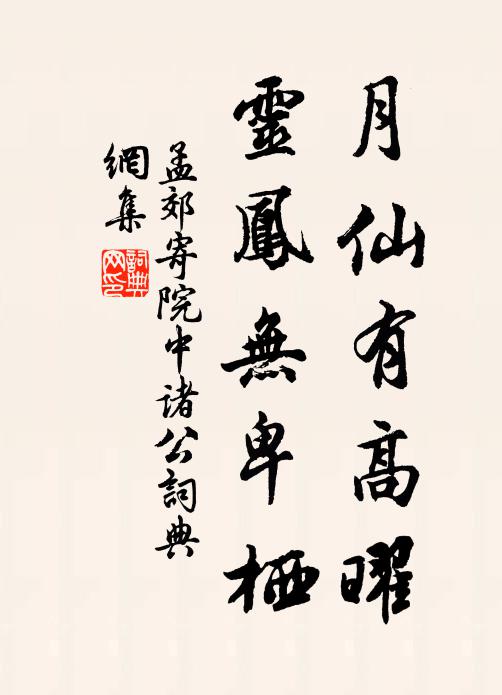 月仙有高曜
靈鳳無卑栖
孟郊寄院中诸公詞典
網集
詞典
网印